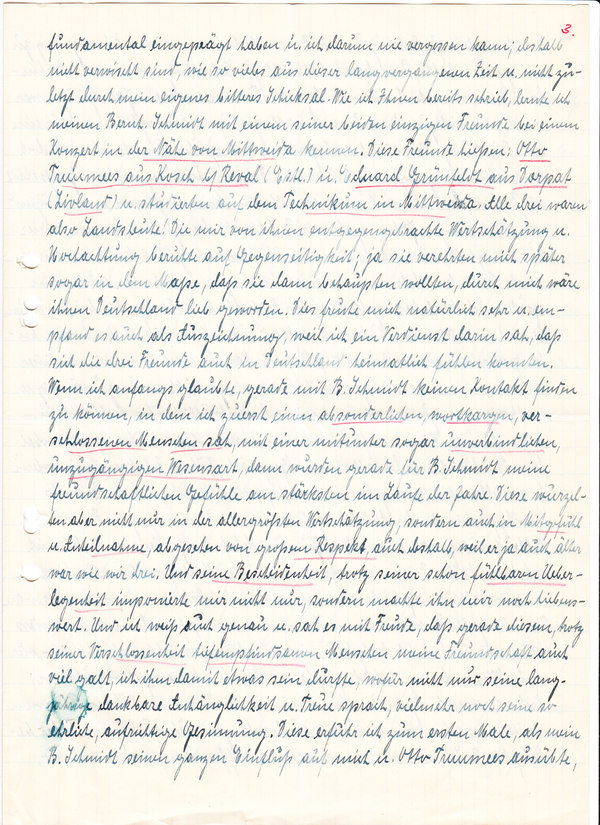 3.
fundamental eingeprägt haben u. ich darum nie vergessen kann; deshalb
nicht verwischt sind, wie so vieles aus dieser langvergangenen Zeit u. nicht zu-
letzt durch mein eigenes bitteres Schicksal. Wie ich Ihnen bereits schrieb, lernte ich
meinen Bernh. Schmidt mit einem seiner beiden einzigen Freunde bei einem
Konzert in der Nähe von Mittweida kennen. Diese Freunde hießen: Otto
Trummees aus Kosch b/ Reval (Estl.) u. Eduard Grünfeldt aus Dorpat
(Livland) u. studierten auf dem Technikum in Mittweida. Alle drei waren
also Landsleute! Die mir von ihnen entgegengebrachte Wertschätzung u.
Hochachtung beruhte auf Gegenseitigkeit; ja sie verehrten mich später
sogar in dem Maße, daß sie dann behaupten wollten, durch mich wäre
ihnen Deutschland lieb geworden. Dies freute mich natürlich sehr u. em-
pfand es auch als Auszeichnung, weil ich ein Verdienst darin sah, daß
sich die drei Freunde auch in Deutschland heimatlich fühlen konnten.
Wenn ich anfangs glaubte, gerade mit B. Schmidt keinen Kontakt finden
zu können, in dem ich zuerst einen absonderlichen, wortkargen, ver-
schlossenen Menschen sah, mit einer mitunter sogar unverbindlichen,
unzugängigen Wesensart, dann wurden gerade für B. Schmidt meine
freundschaftlichen Gefühle am stärksten im Laufe der Jahre. Diese wurzel-
ten aber nicht nur in der allergrößten Wertschätzung, sondern auch in Mitgefühl
u. Anteilnahme, abgesehen von großem Respekt auch deshalb, weil er ja auch älter
war wie wir drei. Und seine Bescheidenheit, trotz seiner schon fühlbaren Ueber-
legenheit imponierte mir nicht nur, sondern machte ihn mir noch liebens-
wert. Und ich weiß auch genau u. sah es mit Freude, daß gerade diesem, trotz
seiner Verschlossenheit tiefempfindsamen Menschen meine Freundschaft auch
viel galt, ich ihm damit etwas sein durfte, wofür nicht nur seine lang-
jährige dankbare Anhänglichkeit u. Treue sprach, vielmehr noch seine so
ehrliche, aufrichtige Gesinnung. Diese erfuhr ich zum ersten Male, als mein
B. Schmidt seinen ganzen Einfluß auf mich u. Otto Trummees ausübte,